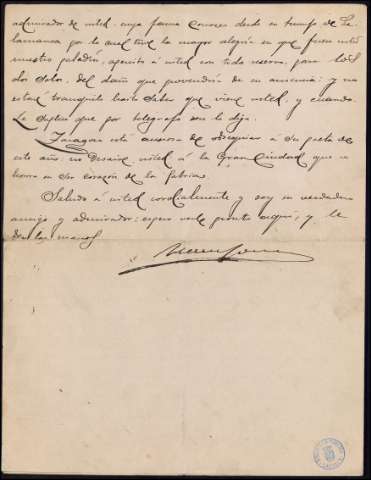 admirador de usted, cuya fama conoce desde su triunfo de Sa-
lamanca por lo cual tuve la mayor alegría en que fuera usted
nuestro paladín, aprecito á usted con toda reserva, para los
dos solos, del daño que provendría de su ausencia; y no
estaré tranquilo hasta saber que viene usted, y cuando.
Le suplico que por telégrafo me lo diga.
Zaragoza está ansiosa de obsequiar á su poeta de
este año. no desaire usted á la Gran Ciudad que se
honra en ser corazón de la
Saludo á usted cordialmente y soy su verdadero
amigo y admirador: espero verle pronto aquí, y le
da las manos